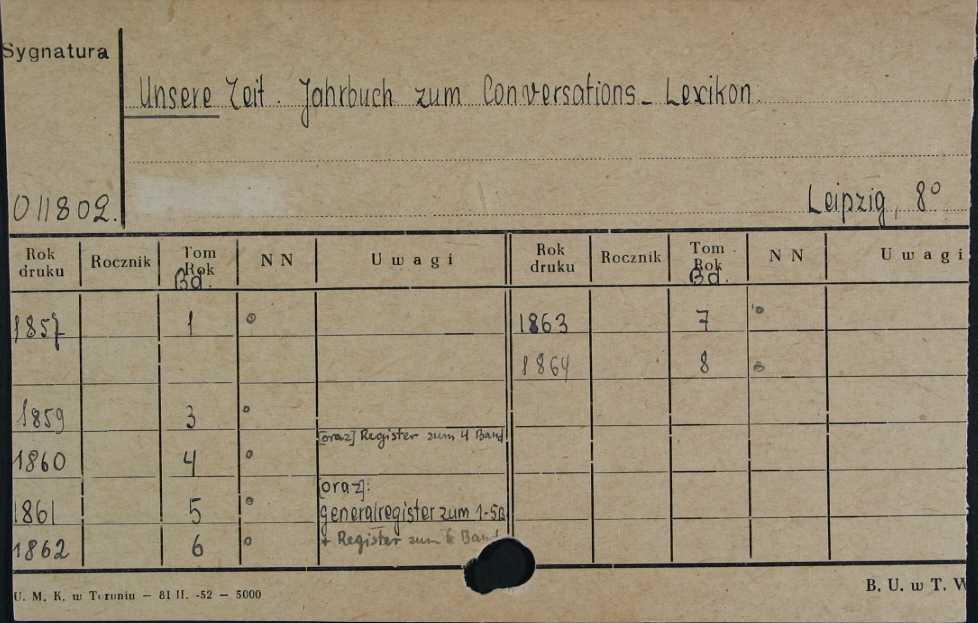 Sygnatura
Unsere Zeit. Jahrbuch zum Conversations-Lexikon.
011802.
Leipzig, 8°
Rok druku Rocznik Tom Rok Bd. NN Uwagi Rok druku Rocznik Tom Rok Bd. NN Uwagi
1857 1 1863 7
1864 8
1859 3
[oraz] Register zum 4 Band
1860 4
[oraz]:
1861 5 generalregister zum 1-5B
1862 6 + Register zum 6 Band
U. M. K. w Toruniu — 81 II. -52 — 5000
B. U. w T. W